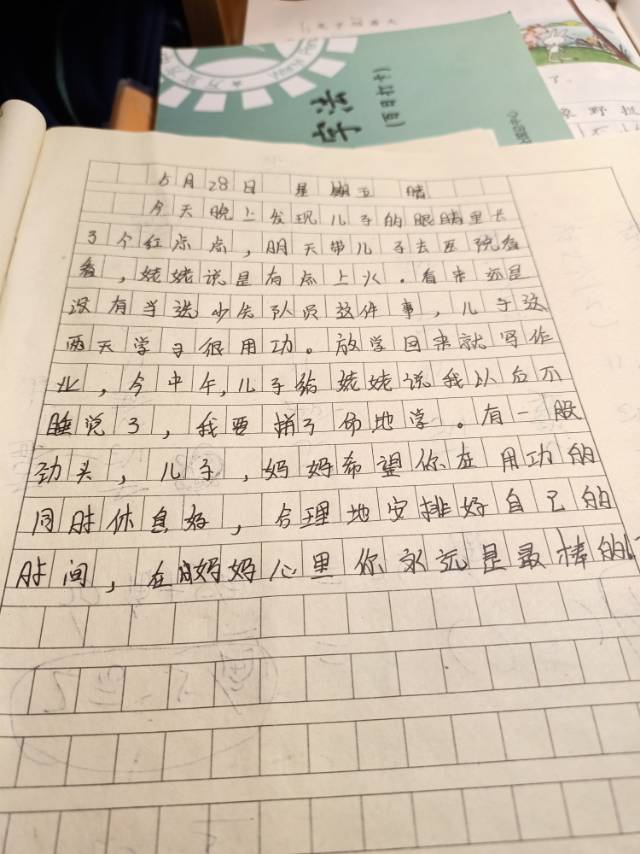 字法
(百日打卡)
5月28日 星期五 晴
今天晚上发现儿子的眼睛里长
了个红点点，明天带儿子去医院看
看，姥姥说是有点上火。看来还是
没有当选少先队员这件事，儿子这
两天学习很用功。放学回来就写作
业，今中午，儿子给姥姥说我以后不
睡觉了，我要拼了命地学。有一股
劲头，儿子，妈妈希望你在用功的
同时休息好，合理地安排好自己的
时间，在妈妈心里你永远是最棒的